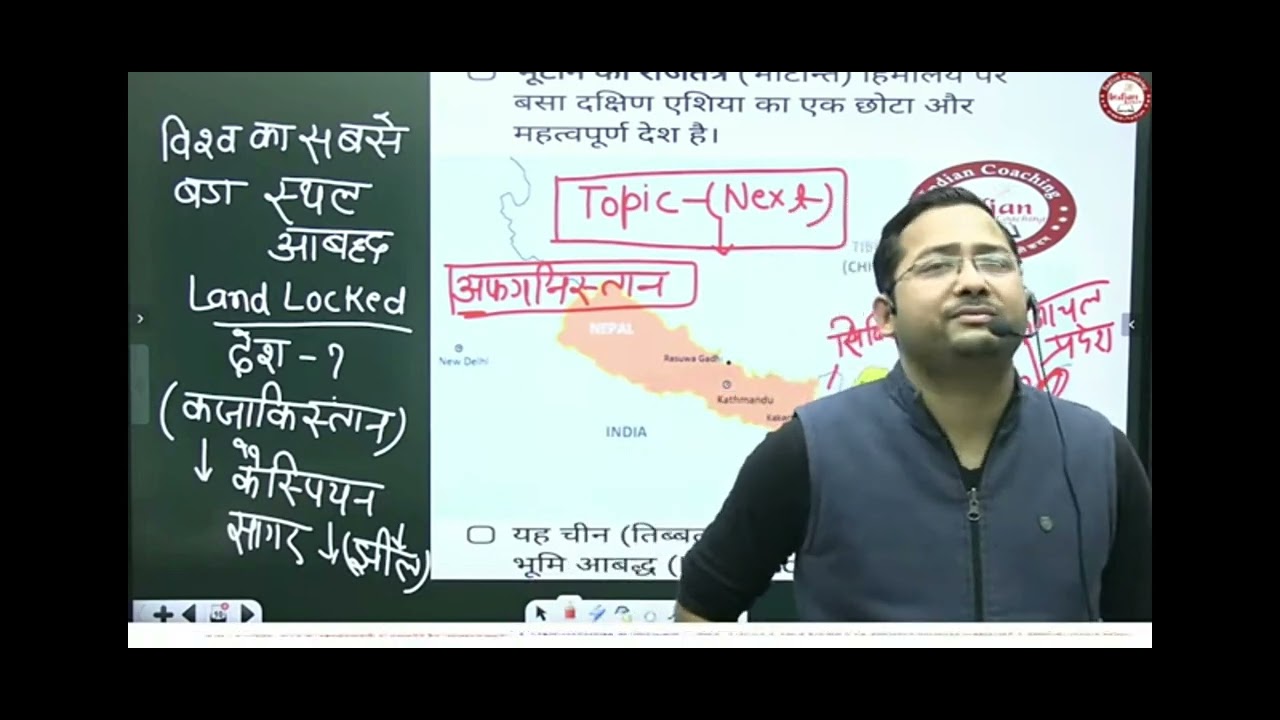 विश्व का सबसे
बडा स्थल
आबद्ध
Land Locked
देश - ?
(कजाकिस्तान)
↓ कैस्पियन
सागर ↓ (झील)
भूटान का राजतंत्र (भोटान्त) हिमालय पर
बसा दक्षिण एशिया का एक छोटा और
महत्वपूर्ण देश है।
Topic-(Next)
अफगानिस्तान
NEPAL
New Delhi
Rasuwa Gadhi
Kathmandu
INDIA
(CHI
प्रदेश
यह चीन (तिब्बत
भूमि आबद्ध (
Indian Coaching